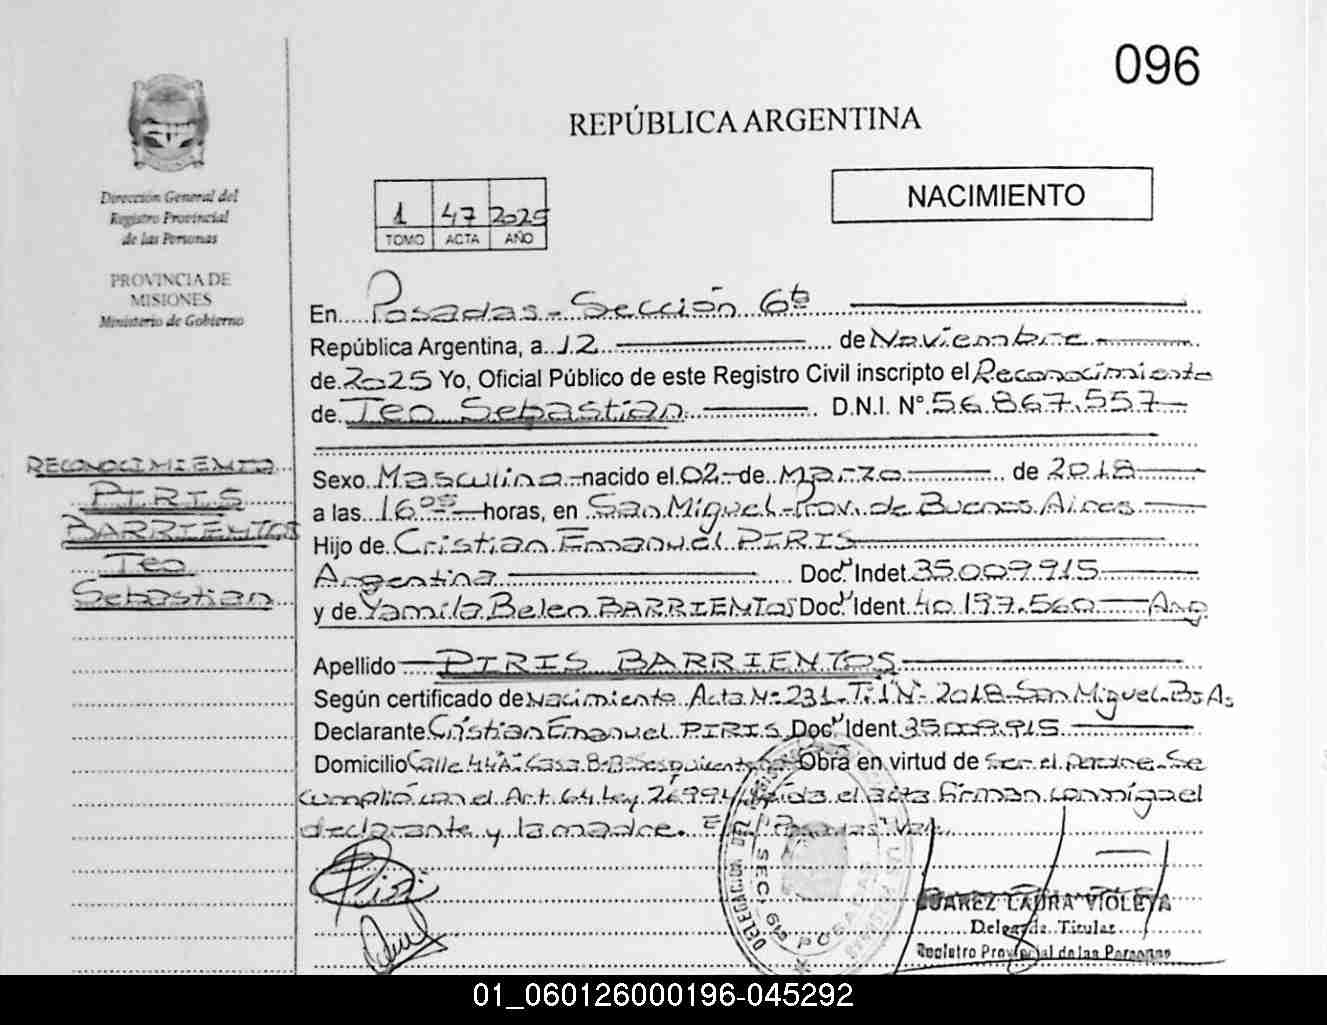 096
REPÚBLICA ARGENTINA
Dirección General del
Registro Provincial
de las Personas
PROVINCIA DE
MISIONES
Ministerio de Gobierno
NACIMIENTO
1 47 2025
TOMO ACTA AÑO
En Posadas - Sección 6ta
República Argentina, a 12 de Noviembre
de 2025 Yo, Oficial Público de este Registro Civil inscripto el Reconocimiento
de Teo Sebastian D.N.I. N° 56.867.557
RECONOCIMIENTO
PIRIS
BARRIENTOS
Teo
Sebastian
Sexo Masculino nacido el 02 de Marzo de 2018
a las 16 horas, en San Miguel - Prov. de Buenos Aires
Hijo de Cristian Emanuel PIRIS
Argentina Doc. Indet. 35.009.915
y de Yamila Belen BARRIENTOS Doc. Ident. 40.197.560 Arg
Apellido PIRIS BARRIENTOS
Según certificado de Nacimiento Acta N: 231 T: 1 N 2018 San Miguel Bs As
Declarante Cristian Emanuel PIRIS Doc. Ident. 35.009.915
Domicilio Calle 44 A Casa Obra en virtud de ser el padre. Se
cumplió con el Art. 64 Ley 26994. Leída el acta firman conmigo el
declarante y la madre. E/L "Posadas" Vale.
Piris
SECC. 6ta POSADAS
SUAREZ LAURA VIOLETA
Delegada Titular
Registro Provincial de las Personas
01_060126000196-045292